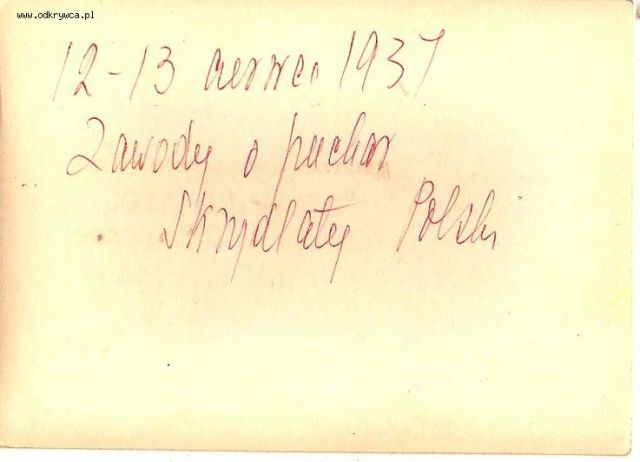 www.odkrywca.pl
12-13 czerwca 1937
Zawody o puchar
Skrzydlatej Polski